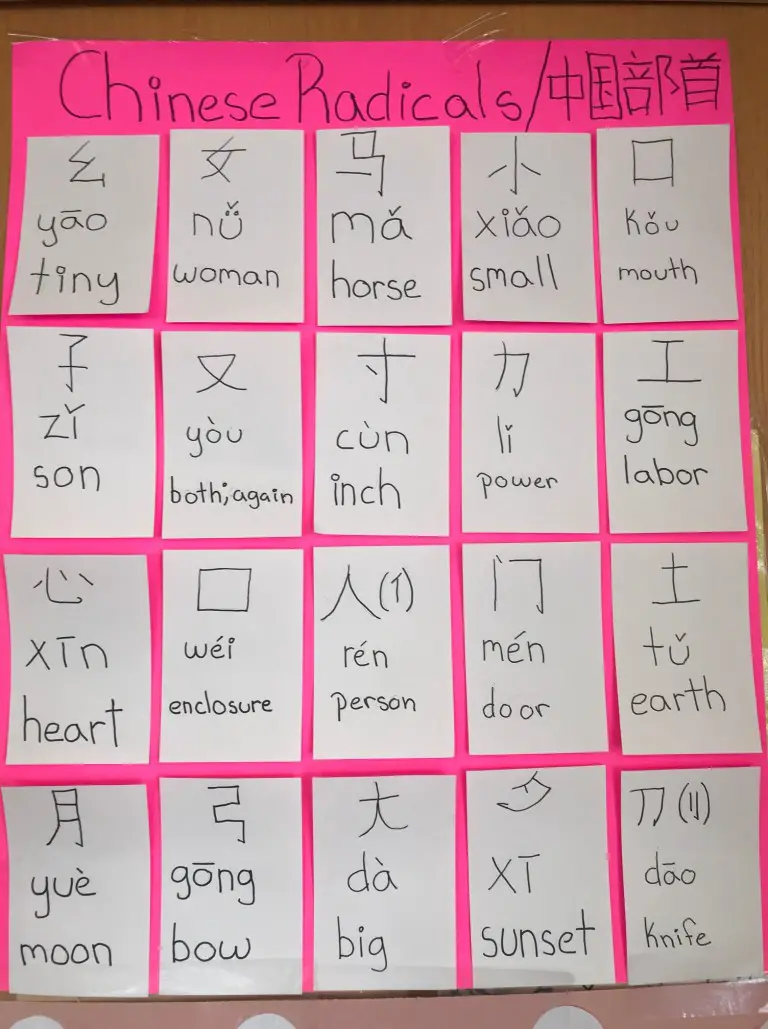 Chinese Radicals/中国部首
幺
yāo
tiny
女
nǚ
woman
马
mǎ
horse
小
xiǎo
small
口
kǒu
mouth
子
zǐ
son
又
yòu
both;again
寸
cùn
inch
力
lǐ
power
工
gōng
labor
心
xīn
heart
囗
wéi
enclosure
人(亻)
rén
person
门
mén
door
土
tǔ
earth
月
yuè
moon
弓
gōng
bow
大
dà
big
夕
xī
sunset
刀(刂)
dāo
knife